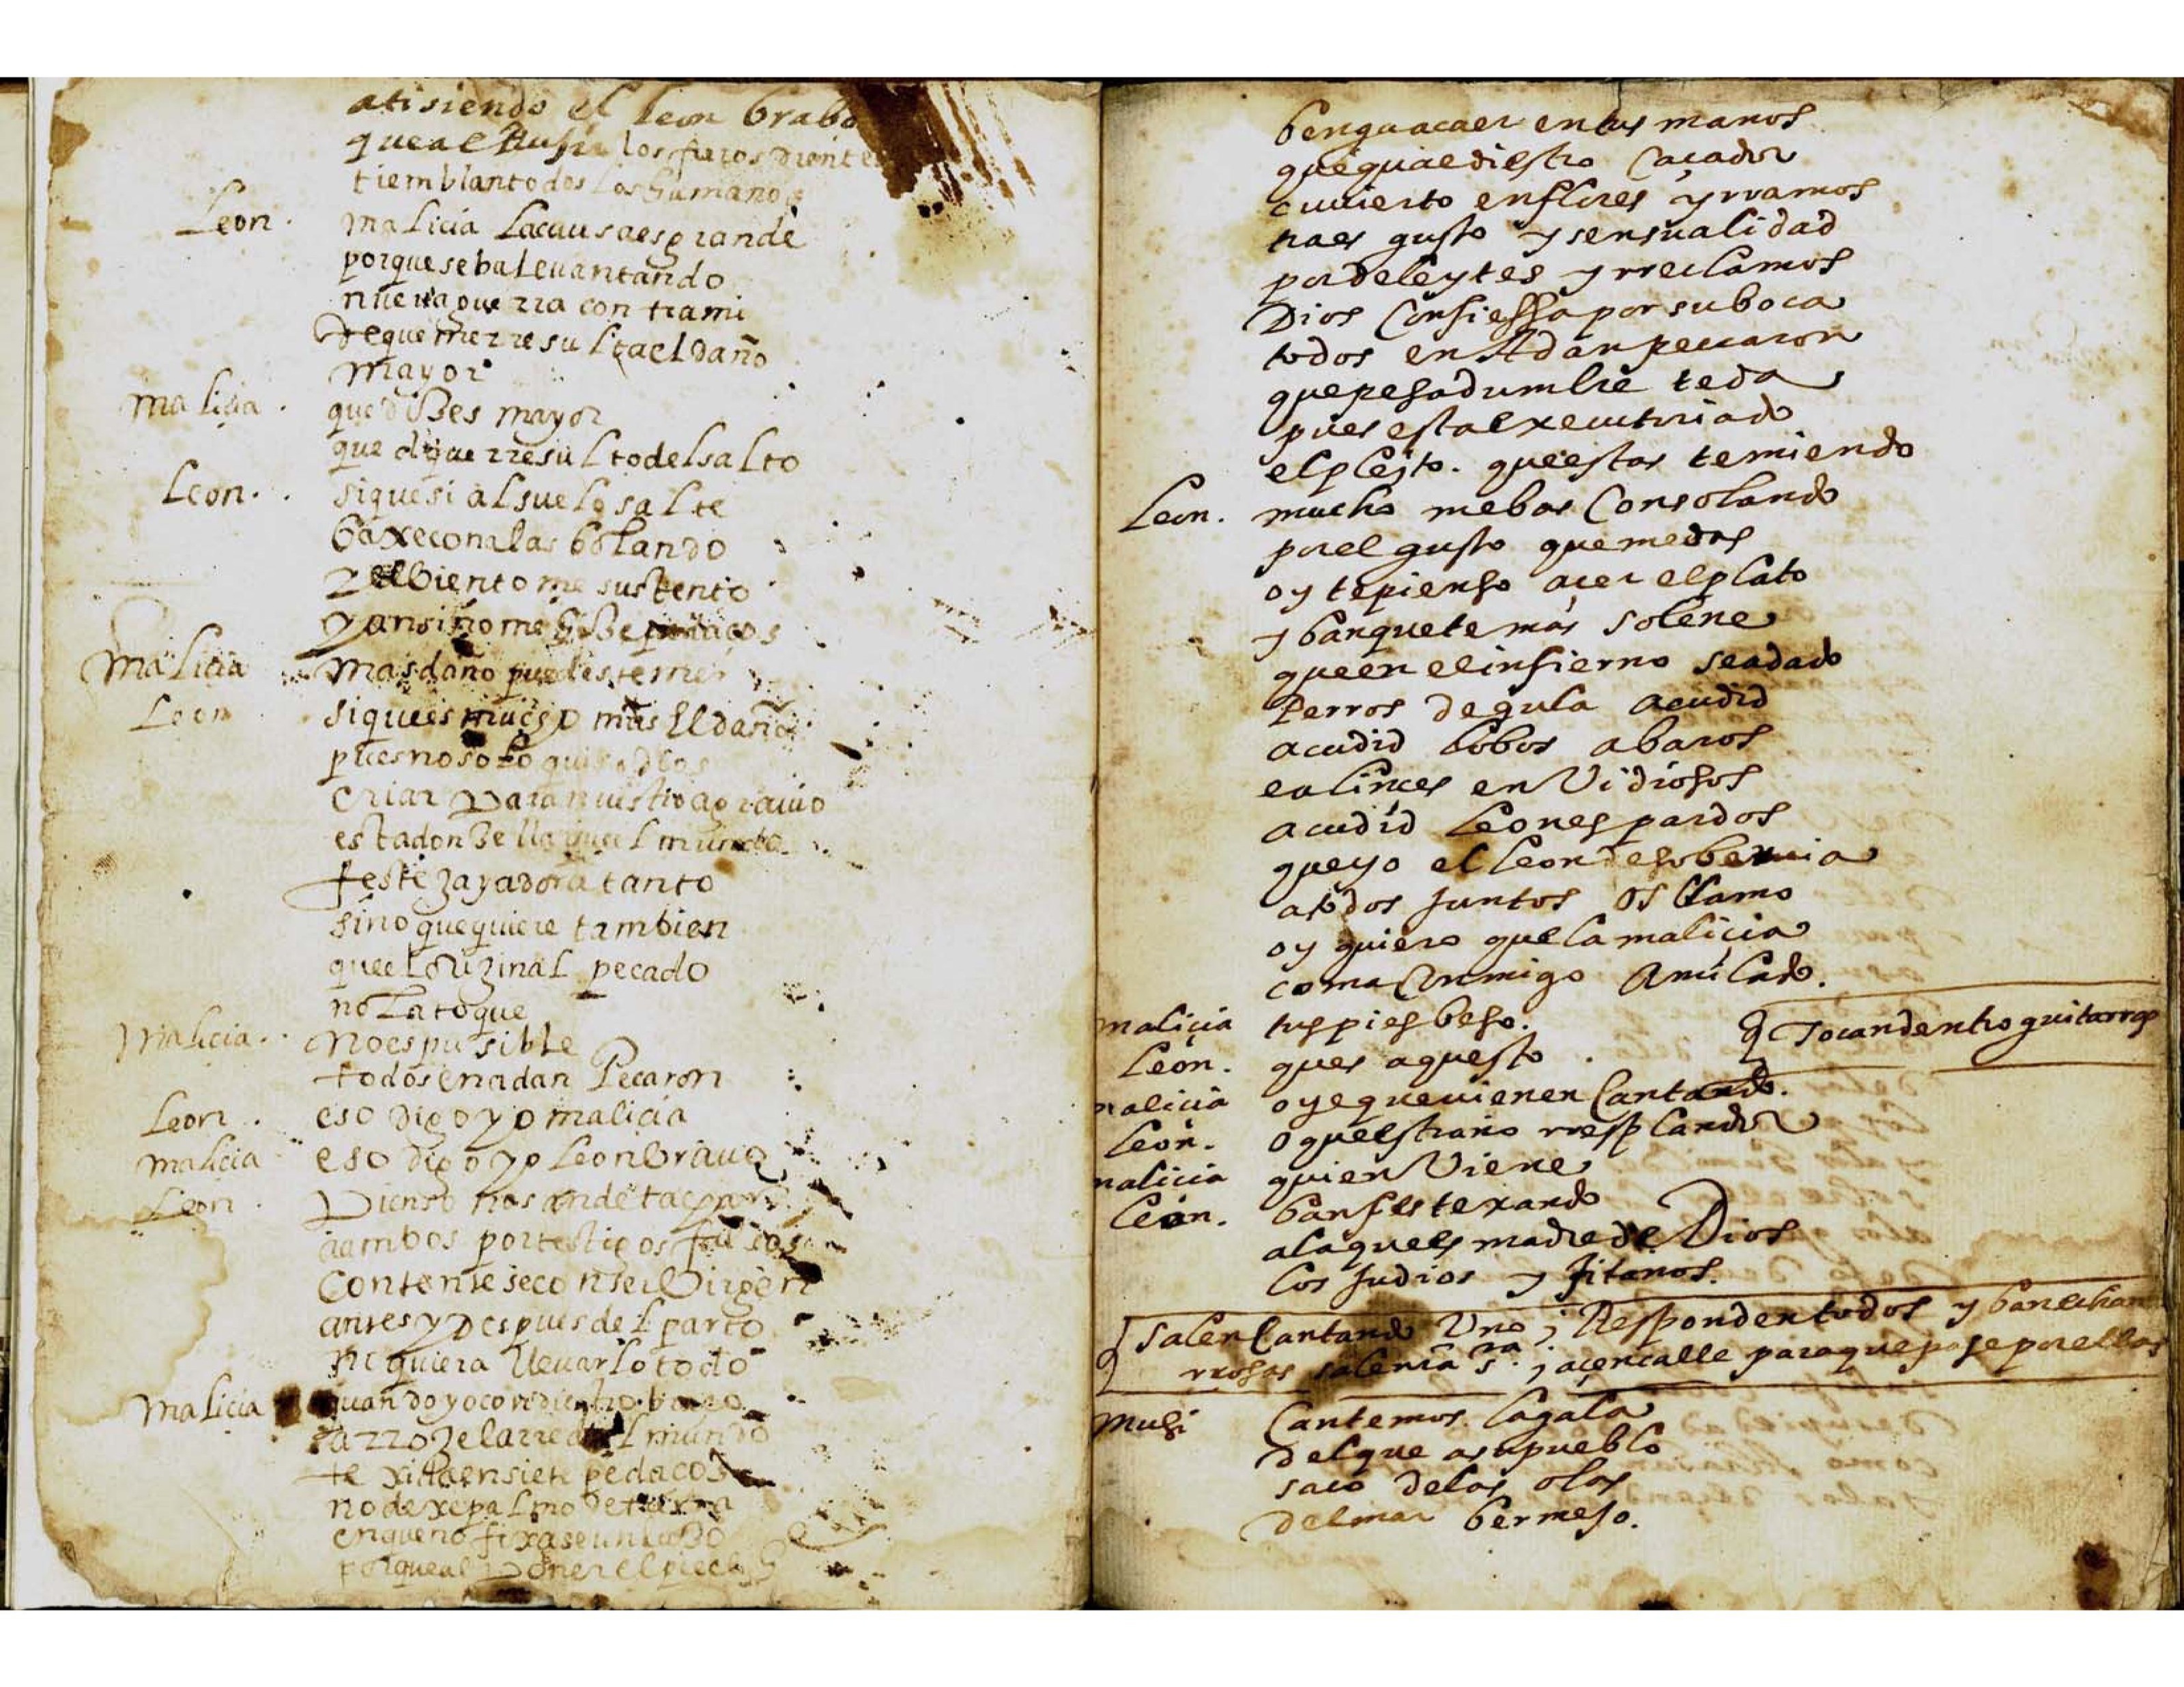 atisiendo el leon brabo
que al los fieros diente
tiemblan todos los humanos
Leon. malicia la causa es grande
porque se ba levantando
nueva guerra contra mi
de que me rresulta el daño
mayor
malicia. que dizes mayor
que el que rresulto del salto
Leon. si que si al suelo salte
baxe con alas bolando
i el biento me sustento
y ansi no me
malicia mas daño puedes temer
Leon si que es mucho mas El daño
pues no solo quiso dios
criar para nuestro agravio
esta donzella que el mundo
festeza y adora tanto
sino que quiere tambien
que el orizinal pecado
no la toque
malicia. no es pusible
todos en adan Pecaron
Leon. eso digo yo malicia
malicia eso digo yo Leon bravo
Leon. Pienso nos an de tachar
a ambos por testigos falsos
Contentese con ser Virgen
antes y despues del parto
ni quiera llevarlo todo
malicia quando yo
el mundo
te en siete pedaços
no dexe palmo de tierra
en que no fixase un
porque al poner el pie
benga a caer en tus manos
que qual diestro Caçador
cuvierto en flores y rramos
traes gusto y sensualidad
por deleytes y rreclamos
Dios Confiessa por su boca
todos en Adan peccaron
que pesadumbre te da
pues esta executoriado
el pleyto. que estas temiendo
Leon. mucho me bas Consolando
por el gusto que me das
oy te pienso acer el plato
y banquete mas solene
que en el infierno se a dado
Perros de gula acudid
acudid lobos abaros
ea linces envidiosos
acudid leones pardos
que yo el leon de sobervia
a todos juntos os llamo
oy quiero que la malicia
coma Conmigo A mi lado.
malicia tus pies beso. Tocan dentro guitarras
Leon. que es aquesto.
malicia oye que vienen Cantando.
Leon. o que estraño rresplandor
malicia quien Viene
Leon. ban festexando
a la que es madre de Dios
los Judios y Jitanos.
Salen Cantando Uno; Respondentodos y ban echan
rrosas saler nra Sra.; açen calle para que pase por ellas
Musi Cantemos la gala
del que a su pueblo
saco de las olas
del mar bermejo.